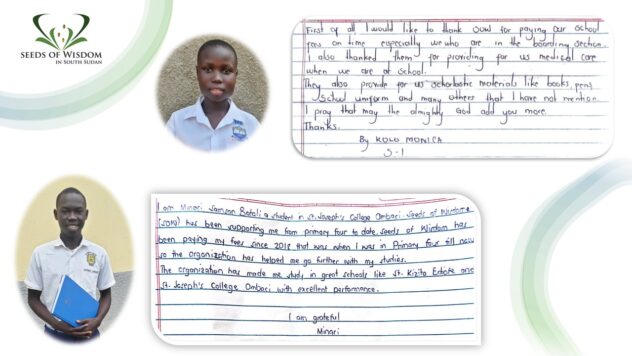 SEEDS OF WISDOM
IN SOUTH SUDAN
First of all I would like to thank SOW for paying our School
fees on time especially we who are in the boarding section.
I also thanked them for providing for us medical care
when we are at School.
They also provide for us scholastic materials like books, pens,
School uniform and many others that I have not mention.
I pray that may the almighty God add you more.
Thanks.
By KOLO MONICA
S-1
I am Minari Samson Batali a student in St. Joseph's College Ombaci. Seeds of Wisdom
(SOW) has been supporting me from primary four to date. Seeds of Wisdom has
been paying my fees since 2018 that was when I was in Primary four till now
so the organization has helped me go further with my studies.
The organization has made me study in great schools like St. Kizito and
St. Joseph's College Ombaci with excellent performance.
I am grateful
Minari